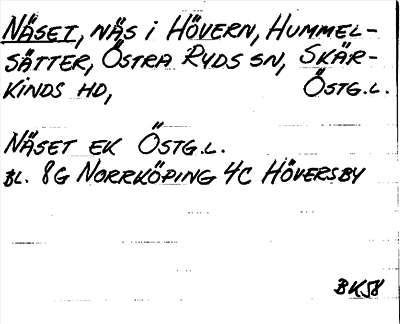 NÄSET, NÄS I HÖVERN, HUMMEL-
SÄTTER, ÖSTRA RYDS SN, SKÄR-
KINDS HD, ÖSTG.L.
NÄSET EK ÖSTG.L.
BL. 8G NORRKÖPING 4C HÖVERSBY
BK58